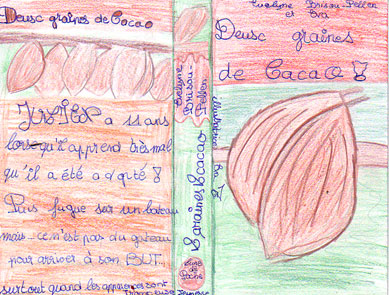 Deusc graines de Cacao
JUSTIN a 11 ans
lorsqu'il apprend très mal
qu'il a été adopté !
Puis fugue sur un bateau
mais... ce n'est pas du gateau
pour arriver à son BUT...
surtout quand les apparences sont
Evelyne
Brisou-
Pellen
2 graines de cacao
Livre
de
Poche
Jeunesse
Evelyne Brisou-Pellen
et Eva
Deusc graines
de Cacao !
illustratrice